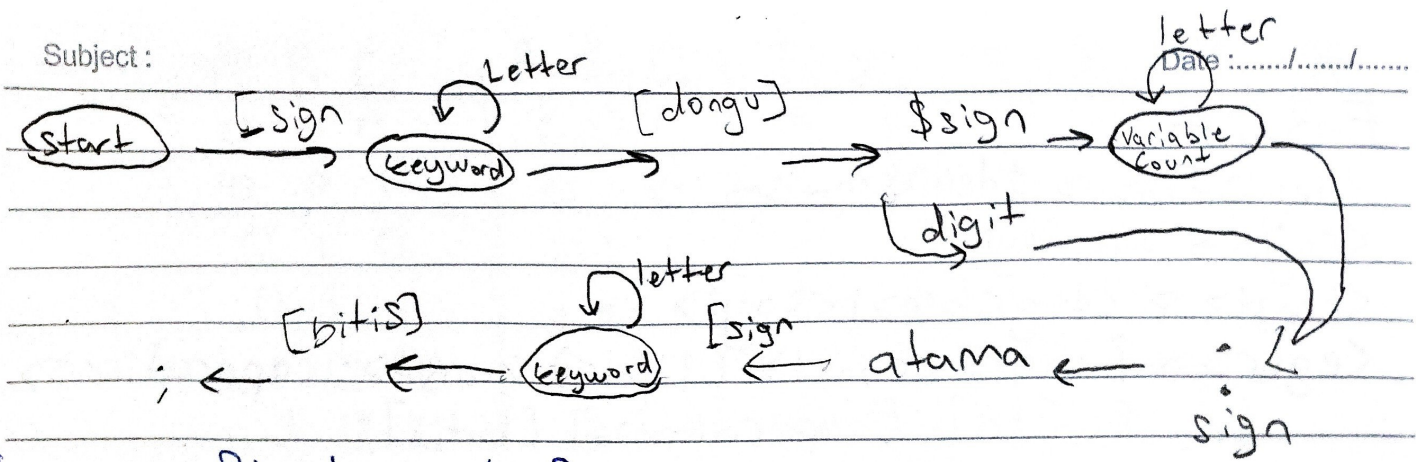 Subject :
Date :......../......../........
letter
Letter
start
[sign
keyword
[dongu]
$sign
variable count
digit
letter
;
[bitis]
keyword
[sign
atama
:
sign